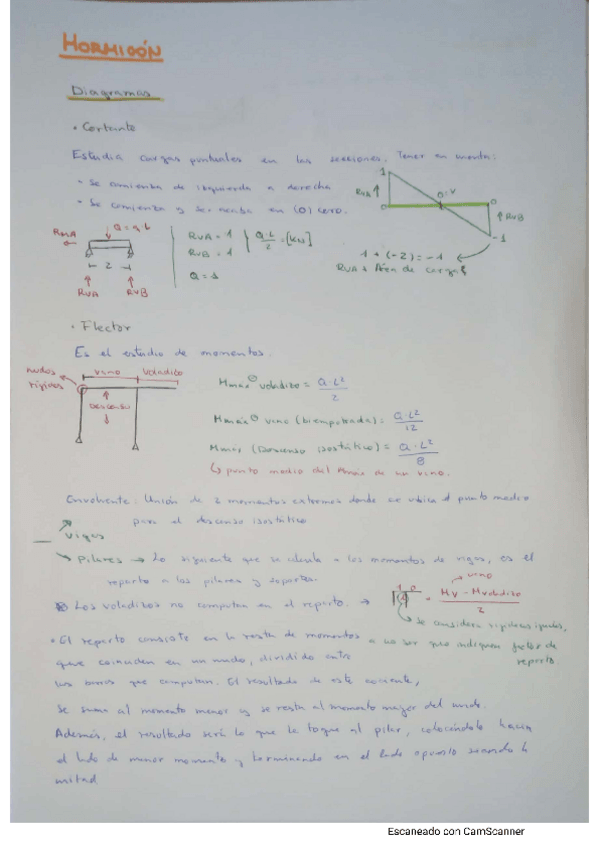 HORMIGÓN
Diagramas
• Cortante
Estudia cargas puntuales en las secciones. Tener en cuenta:
- Se comienza de izquierda a derecha
- Se comienza y se acaba en (0) cero.
RHA
Q = q·L
2
RVA RVB
RVA = 1
RVB = 1
Q = 1
Q·L/2 = [KN]
1
RVA
0 0=V 0
RVB
-1
1 + (-2) = -1
RVA + Área de cargas
• Flector
Es el estudio de momentos.
nudos
rígidos
vano voladizo
Descenso
Mmáx⊖ voladizo = Q·L²/2
Mmáx⊖ vano (biempotrada) = Q·L²/12
Mmáx (Descenso isostático) = Q·L²/8
↳ punto medio del Mmáx de un vano.
Envolvente: Unión de 2 momentos extremos donde se ubica el punto medio
para el descenso isostático
Vigas
Pilares → Lo siguiente que se calcula a los momentos de vigas, es el
reparto a los pilares y soportes.
Los voladizos no computan en el reparto. →
vano
= Mv - Mvoladizo / 2
Se considera rigideces iguales,
a no ser que indiquen factor de
reparto
• El reparto consiste en la resta de momentos
que coinciden en un nudo, dividido entre
las barras que computan. El resultado de este cociente,
se suma al momento menor y se resta al momento mayor del nudo.
Además, el resultado será lo que le toque al pilar, colocándolo hacia
el lado de menor momento y terminando en el lado opuesto siendo la
mitad
Escaneado con CamScanner